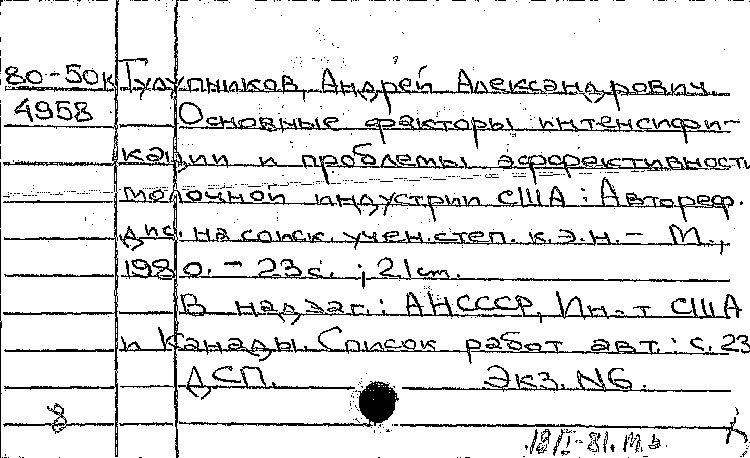 80-50к Тулупников, Андрей Александрович.
4958 Основные факторы интенсифи-
кации и проблемы эффективности
молочной индустрии США : Автореф.
дис. на соиск. учен. степ. к.э.н. – М.,
1980. – 23с. ; 21см.
В надзаг.: АНСССР, Ин-т США
и Канады. Список работ авт.: с. 23
ДСП. Экз. N6.
18/I-81.